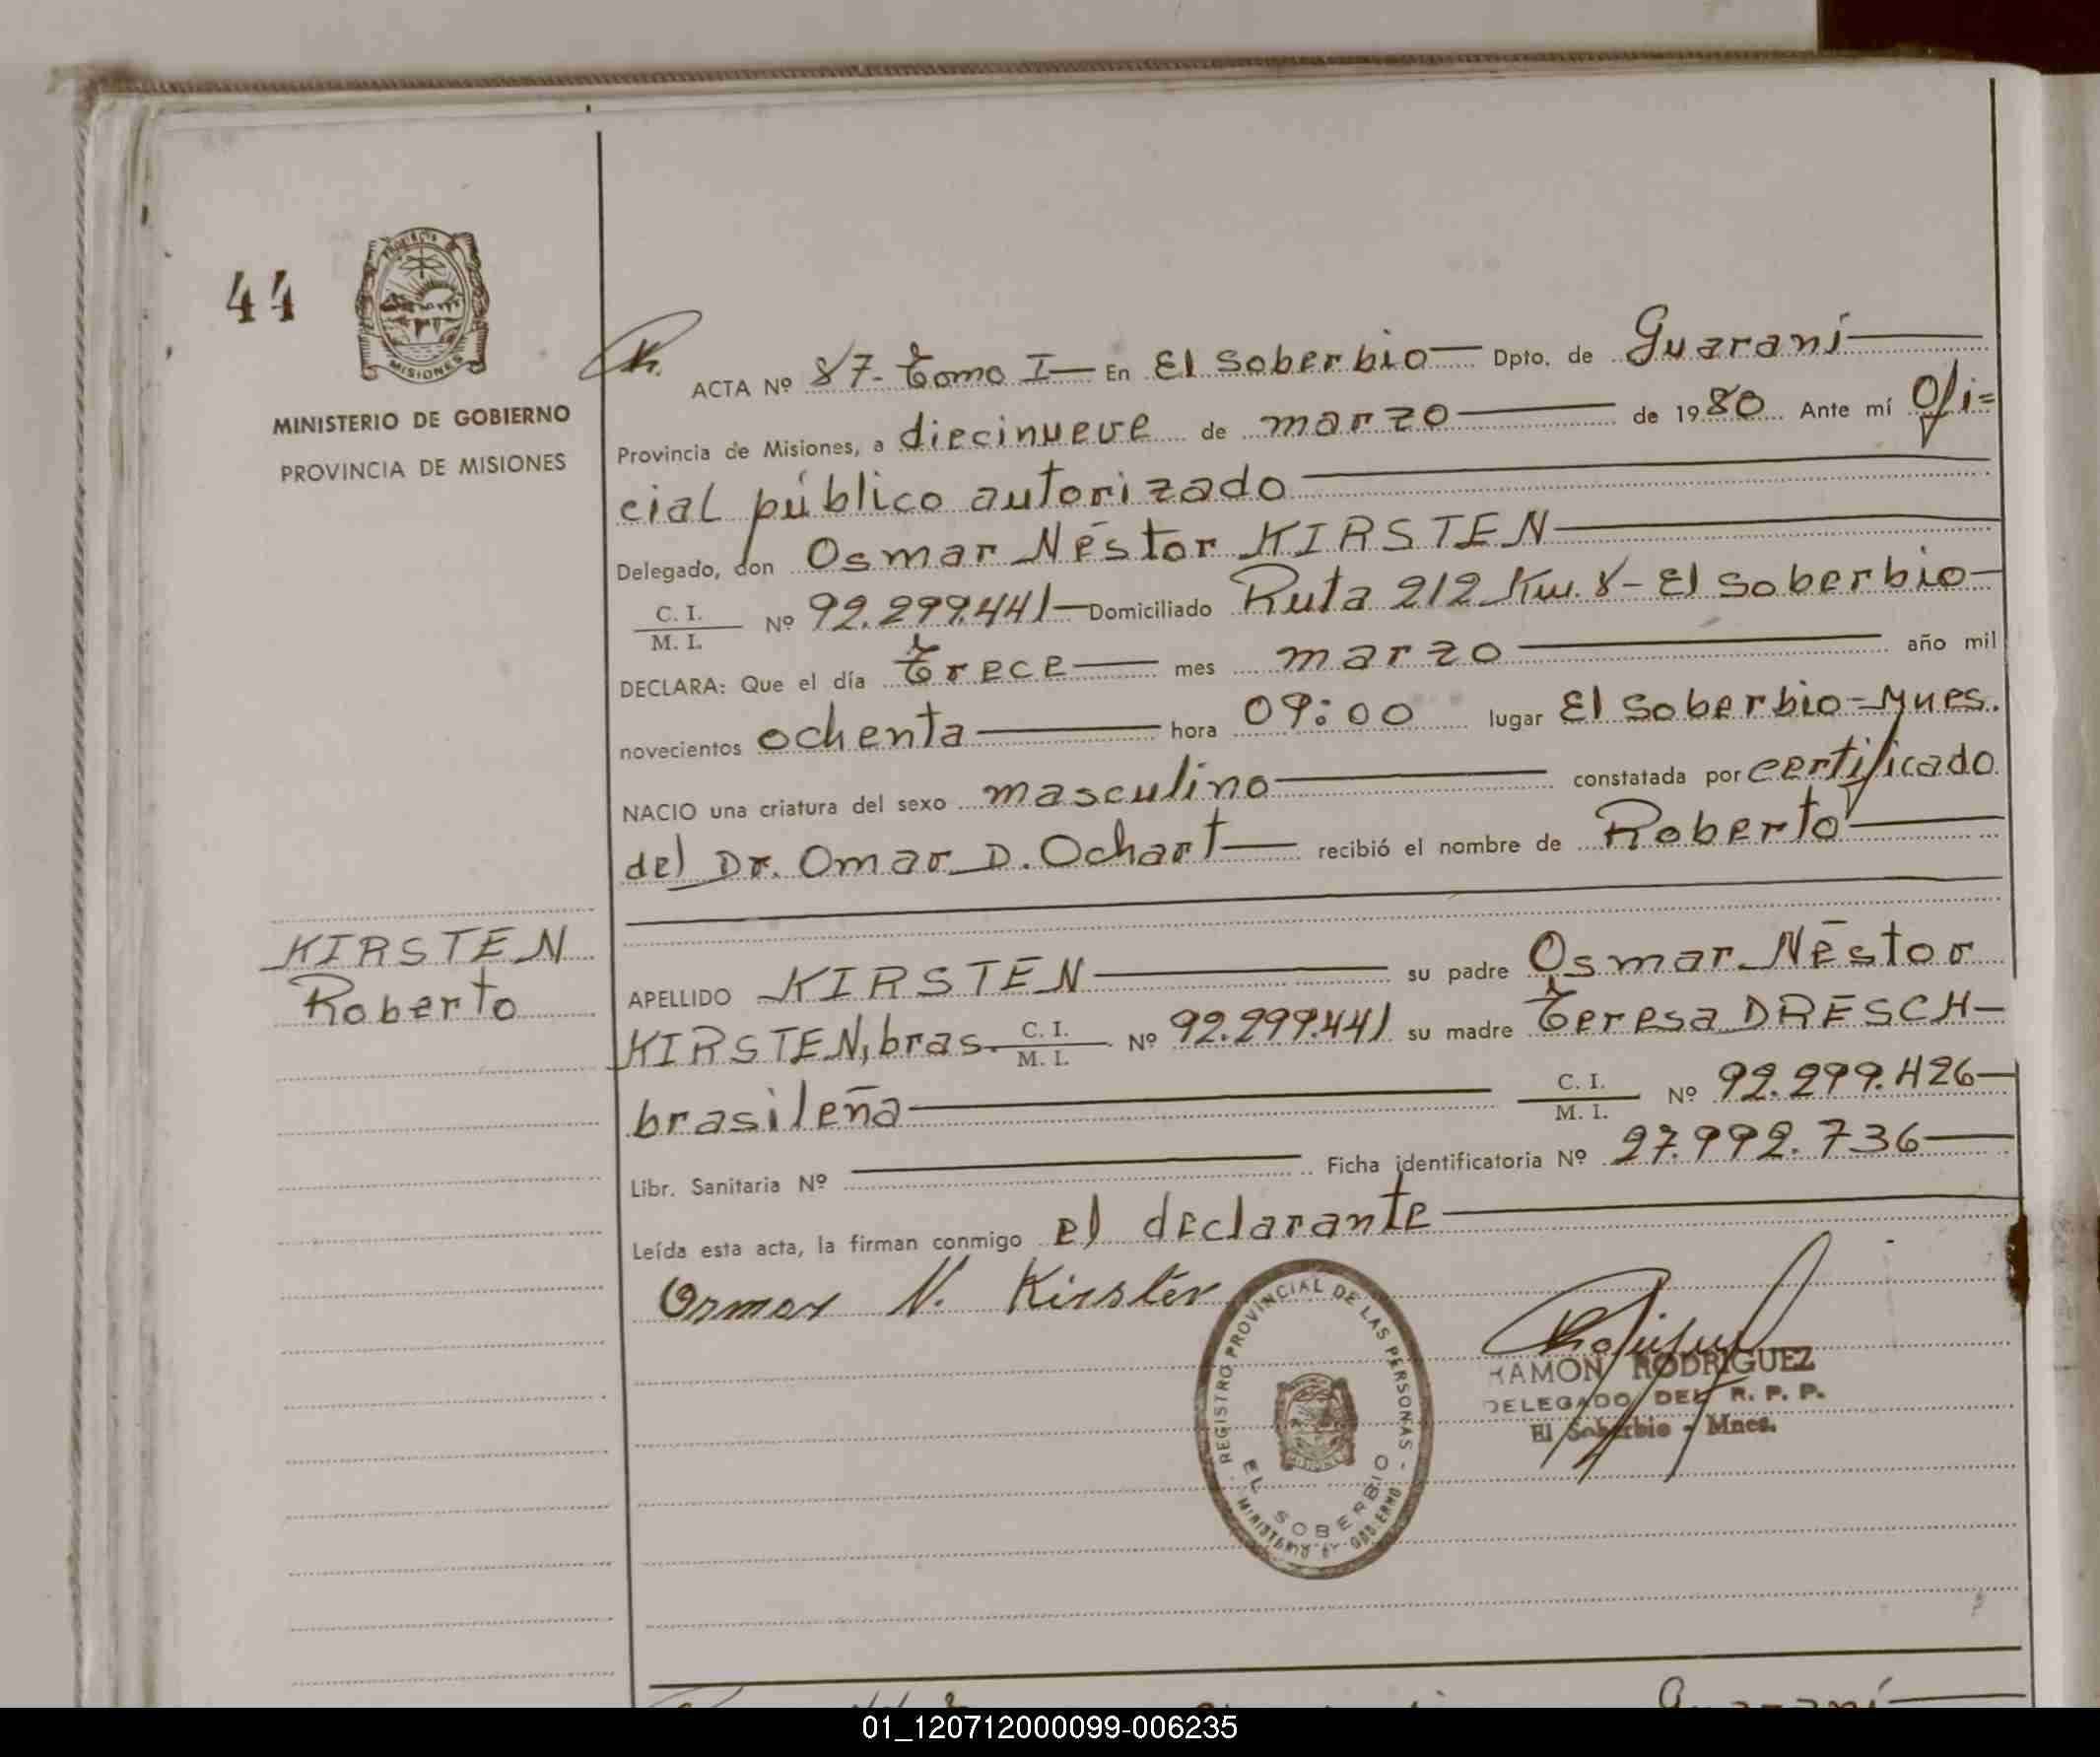 44
PROVINCIA
MISIONES
MINISTERIO DE GOBIERNO
PROVINCIA DE MISIONES
ACTA Nº 87- Tomo I — En El Soberbio — Dpto. de Guaraní
Provincia de Misiones, a diecinueve de marzo — de 1980 Ante mí Ofi=
cial público autorizado
Delegado, don Osmar Néstor KIRSTEN
C. I. / M. I. Nº 92.299.441 — Domiciliado Ruta 212 Km. 8 - El Soberbio
DECLARA: Que el día Trece — mes marzo — año mil
novecientos ochenta — hora 09:00 lugar El Soberbio - Mnes.
NACIO una criatura del sexo masculino — constatada por certificado
del Dr. Omar D. Ochart — recibió el nombre de Roberto
KIRSTEN
Roberto
APELLIDO KIRSTEN — su padre Osmar Néstor
KIRSTEN, bras. C. I. / M. I. Nº 92.299.441 su madre Teresa DRESCH -
brasileña — C. I. / M. I. Nº 92.299.426
Libr. Sanitaria Nº — Ficha identificatoria Nº 27.992.736
Leída esta acta, la firman conmigo el declarante
Osmar N. Kirsten
REGISTRO PROVINCIAL DE LAS PERSONAS -
EL SOBERBIO
MINISTERIO DE GOBIERNO
RAMON RODRIGUEZ
DELEGADO DEL R. P. P.
El Soberbio - Mnes.
01_120712000099-006235